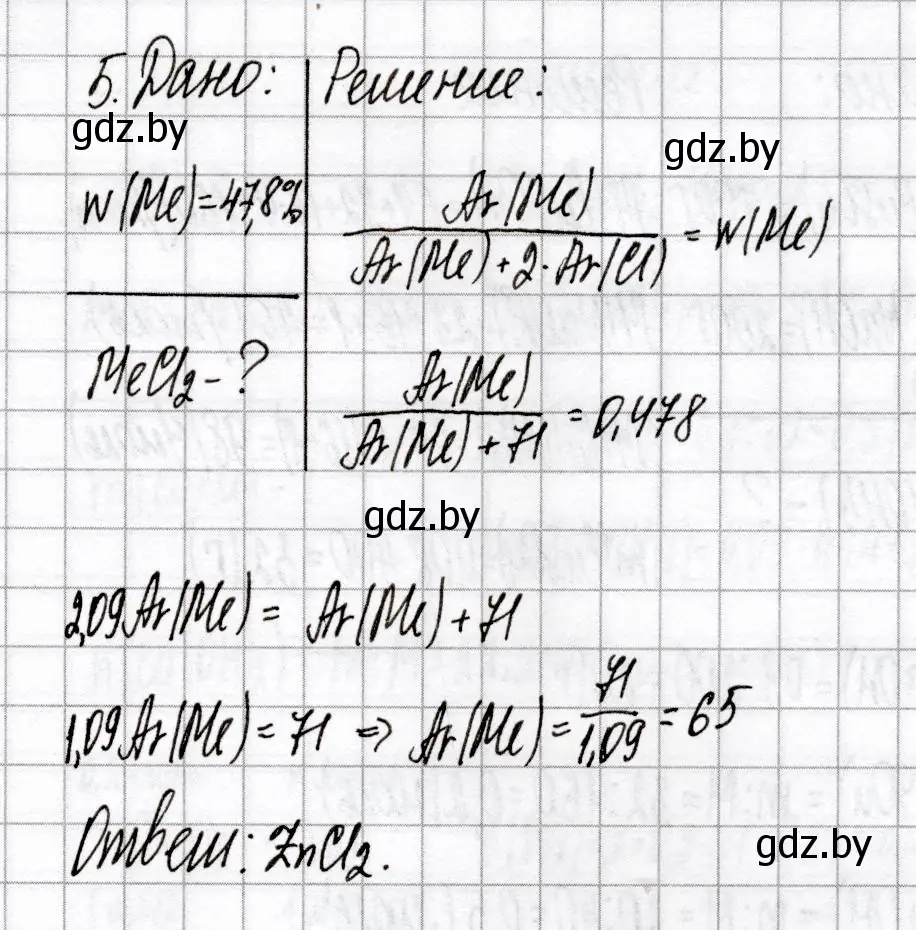 5. Дано:
gdz.by
w(Me)=47,8%
MeCl2 - ?
Решение:
gdz.by
Ar(Me)
Ar(Me) + 2 · Ar(Cl) = w(Me)
Ar(Me)
Ar(Me) + 71 = 0,478
gdz.by
2,09Ar(Me) = Ar(Me) + 71
1,09Ar(Me) = 71 => Ar(Me) = 71/1,09 = 65
Ответ: ZnCl2.
gdz.by